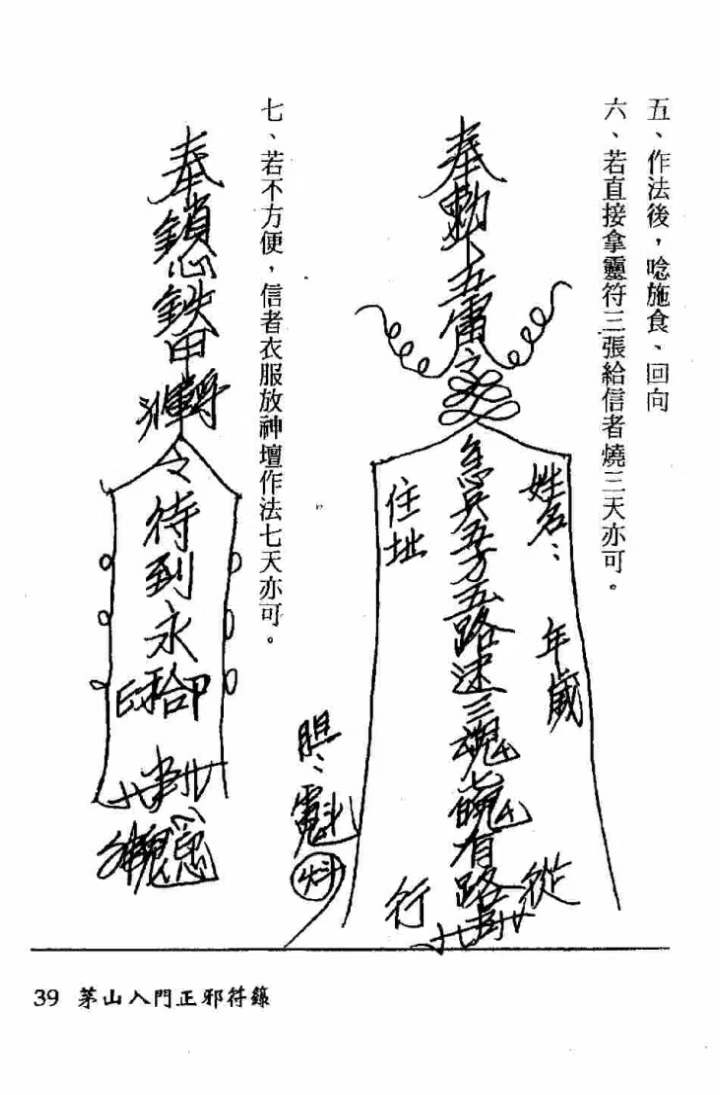 五、作法後，唸施食、回向
六、若直接拿靈符三張給信者燒三天亦可。
奉勅下五雷令
姓名：
年歲
急兵五方五路速三魂七魄有路
從
住址
行
胆：
七、若不方便，信者衣服放神壇作法七天亦可。
奉鎖心鉄甲
令待到永
39 茅山入門正邪符籙